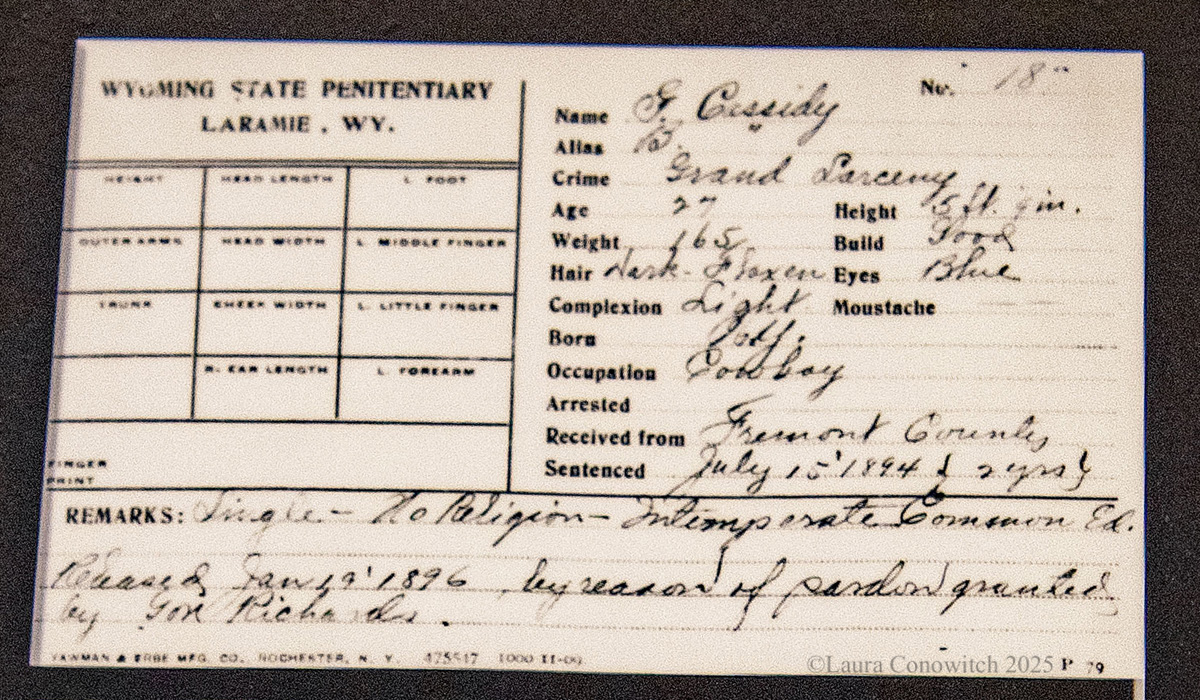 WYOMING STATE PENITENTIARY
LARAMIE, WY.
HEIGHT HEAD LENGTH L. FOOT
OUTER ARMS HEAD WIDTH L. MIDDLE FINGER
TRUNK CHEEK WIDTH L. LITTLE FINGER
R. EAR LENGTH L. FOREARM
FINGER
PRINT
No. 18
Name G. Cassidy
Alias B. "
Crime Grand Larceny
Age 27 Height 5 ft. 9 in.
Weight 165 Build Good
Hair Dark-Flaxen Eyes Blue
Complexion Light Moustache
Born
Occupation Cowboy
Arrested
Received from Fremont County
Sentenced July 15' 1894 { 2 yrs }
REMARKS: Single - No Religion - Intemperate Common Ed.
Released Jan 19' 1896, by reason of pardon granted
by Gov Richards.
YAWMAN & ERBE MFG. CO. ROCHESTER, N. Y. 475547 1000 11-09
©Laura Conowitch 2025 P 79